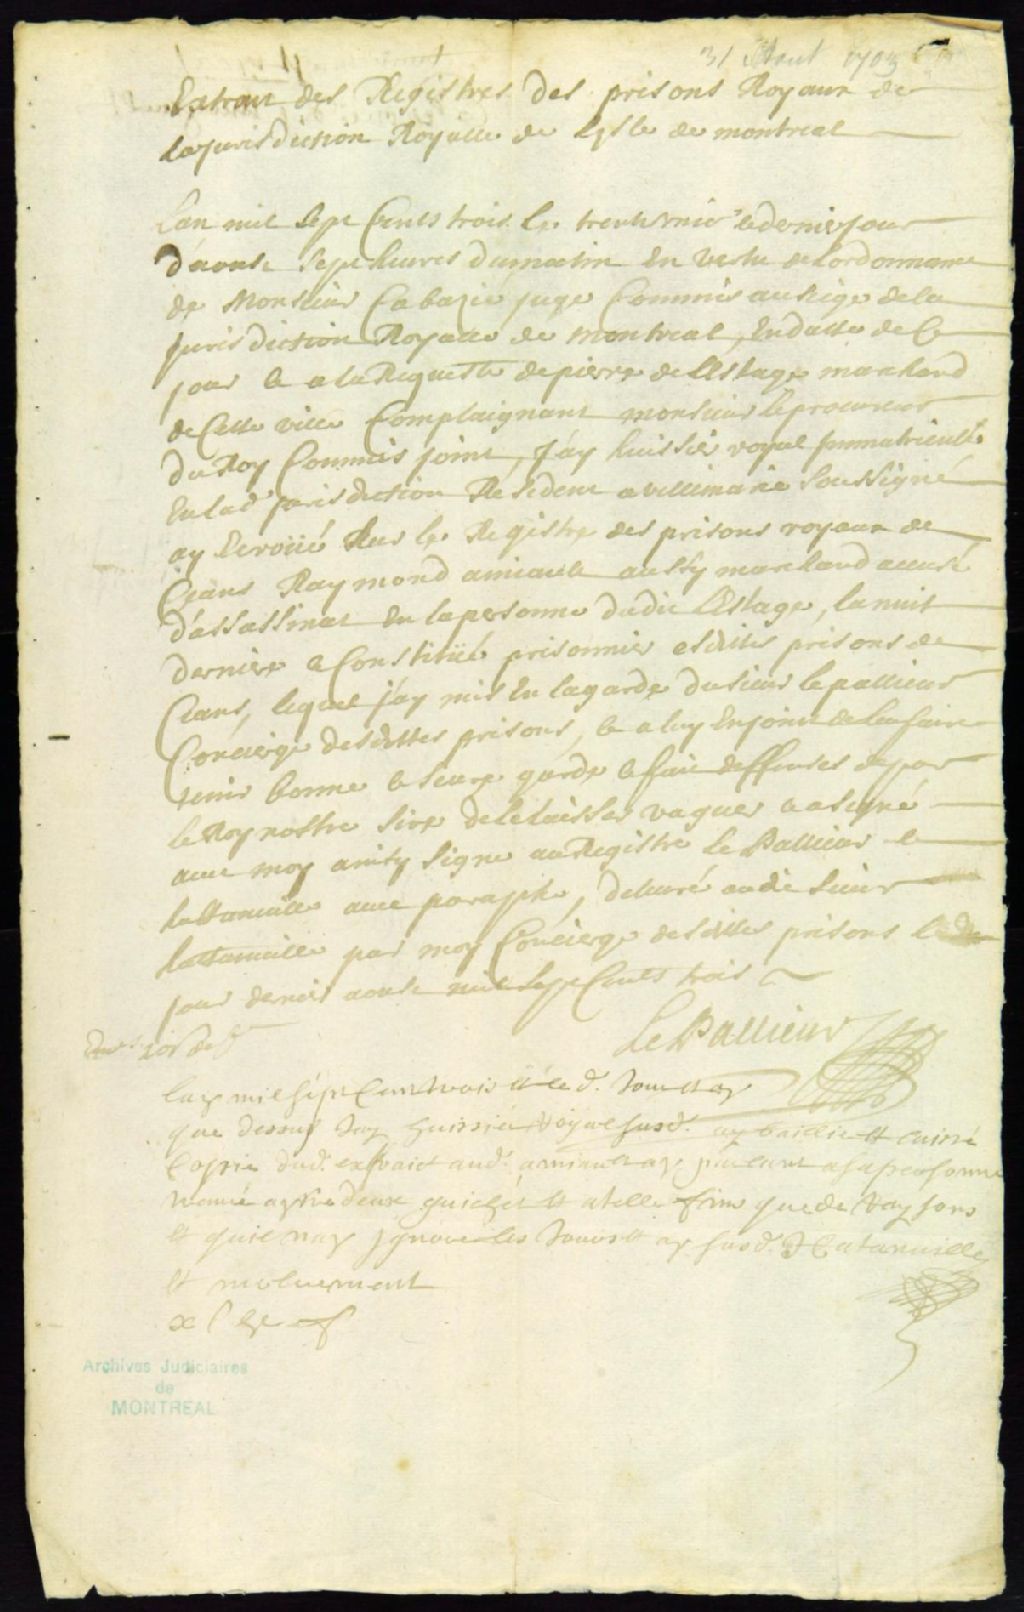 31 Aout 1703
Extrait des Registres des prisons Royaux de
la jurisdiction Royalle de Lisle de montreal
L'an mil sept Cents trois le trente unie & dernier jour
d'aoust sept heures du matin En vertu de Lordonnance
de Monsieur Cabazie juge Commis au siege de la
jurisdiction Royalle de Montreal, En datte de Ce
jour & a la Requeste de pierre de LEstage marchand
de Cette ville Complaignant monsieur le procureur
du Roy Commis joint, J'ay huissier royal jmmatriculé
En lad' jurisdiction Resident a villemarie Soussigné
ay Ecroüé sus le Registre des prisons royaux de
Ceans Raymond amiault aussy marchand accusé
d'assassinat En la personne dudit LEstage, la nuit
derniere & Constitüé prisonnier esdittes prisons de
Ceans, lequel j'ay mis En la garde du sieur le pallieur
Concierge desdittes prisons, & a luy Enjoint de len faire
tenir bonne & seure garde & fait deffenses de par
le Roy nostre Sire de le laisser vaguer & a signé
avec moy ainsy Signe au Registre Le Pallieur &
avec paraphe, deliuré audit Sieur
par moy Concierge desdittes prisons
jour dernier aoust mil sept Cents trois
Le Pallieur
Lan mil sept Cent trois & led. Jour
que dessus Jay huissié Royal susd. ay baillie et laissé
Coppie dud. extraict aud. amiault parlant a sa personne
entre deux guichet & a telle fin que de Raysons
& quil nay jgnore les Jour & an susd.

Archives Judiciaires
de
MONTREAL